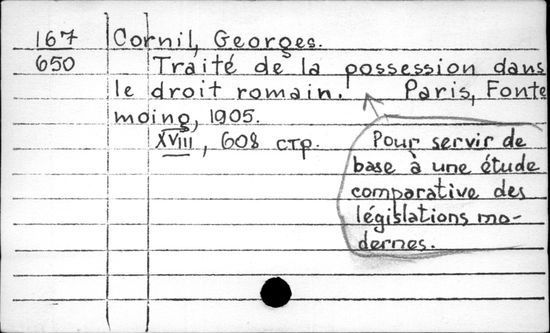 167 Cornil, Georges.
650 Traité de la possession dans
le droit romain. Paris, Fonte
moing, 1905.
XVIII, 608 стр.
Pour servir de
base à une étude
comparative des
législations mo-
dernes.